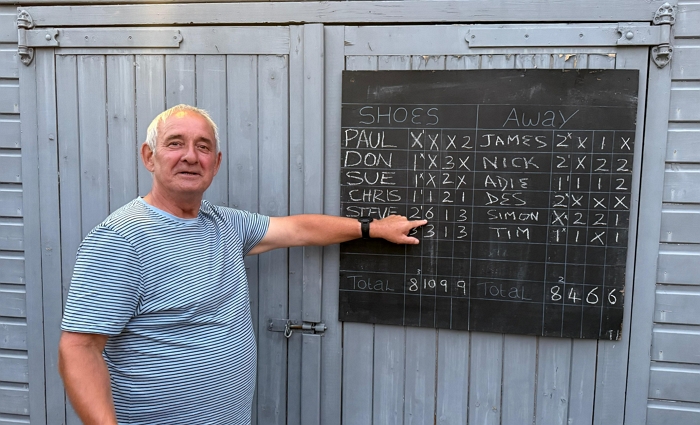 SHOES AWAY
PAUL X' X X 2 JAMES 2ˣ X 1 X
DON 1' X 3 X NICK 2' X 2 2
SUE 1' X 2 X ADIE 1' 1 1 2
CHRIS 1' 1 2 1 DES 2' X X X
STEVE 2 6 1 3 SIMON X' 2 2 1
3 1 3 TIM 1' 1 X 1
Total 8³ 10 9 9 Total 8² 4 6 6